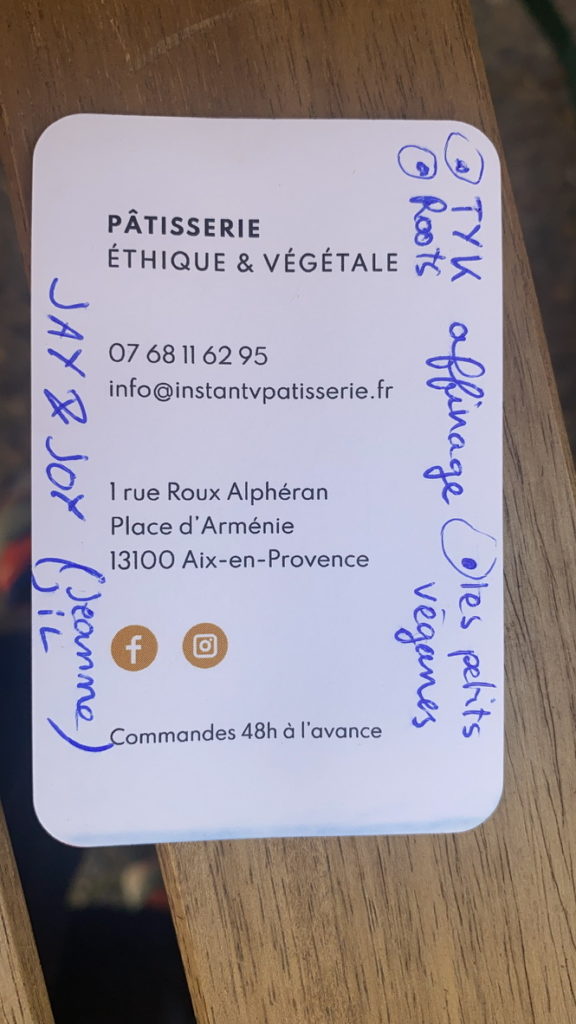 PÂTISSERIE
ÉTHIQUE & VÉGÉTALE
07 68 11 62 95
info@instantvpatisserie.fr
1 rue Roux Alphéran
Place d'Arménie
13100 Aix-en-Provence
Commandes 48h à l'avance
TYK affinage
les petits
véganes
Roots
JAY & JOY (Jeanne)
JIL